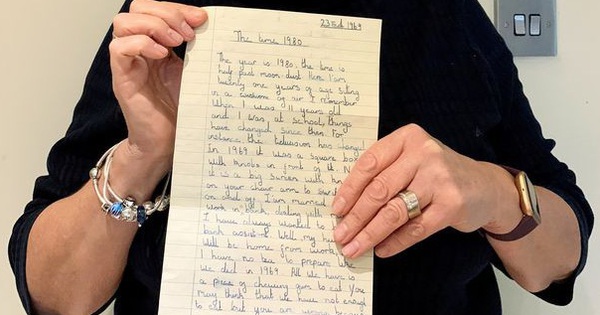 23rd 1969
The time 1980.
The year is 1980, the time is
half past moon dust. Here I am
twenty one years of age siting
in a cushions of air I remember
When I was 11 years old
and I was at school, things
have changed since then For
instance the television has changed
In 1969 it was a square box
With knobs in front of it. N
it is a big screen with
on your chair arm to
on and off I am married
work in bank dealing with
I have always wanted to
bank assistent. Well my hus
Will be home from work,
I have no tea to prepare like
we did in 1969. All we have is
a piece of chewing gum to eat You
may think that we have not enough
to eat but you are wrong